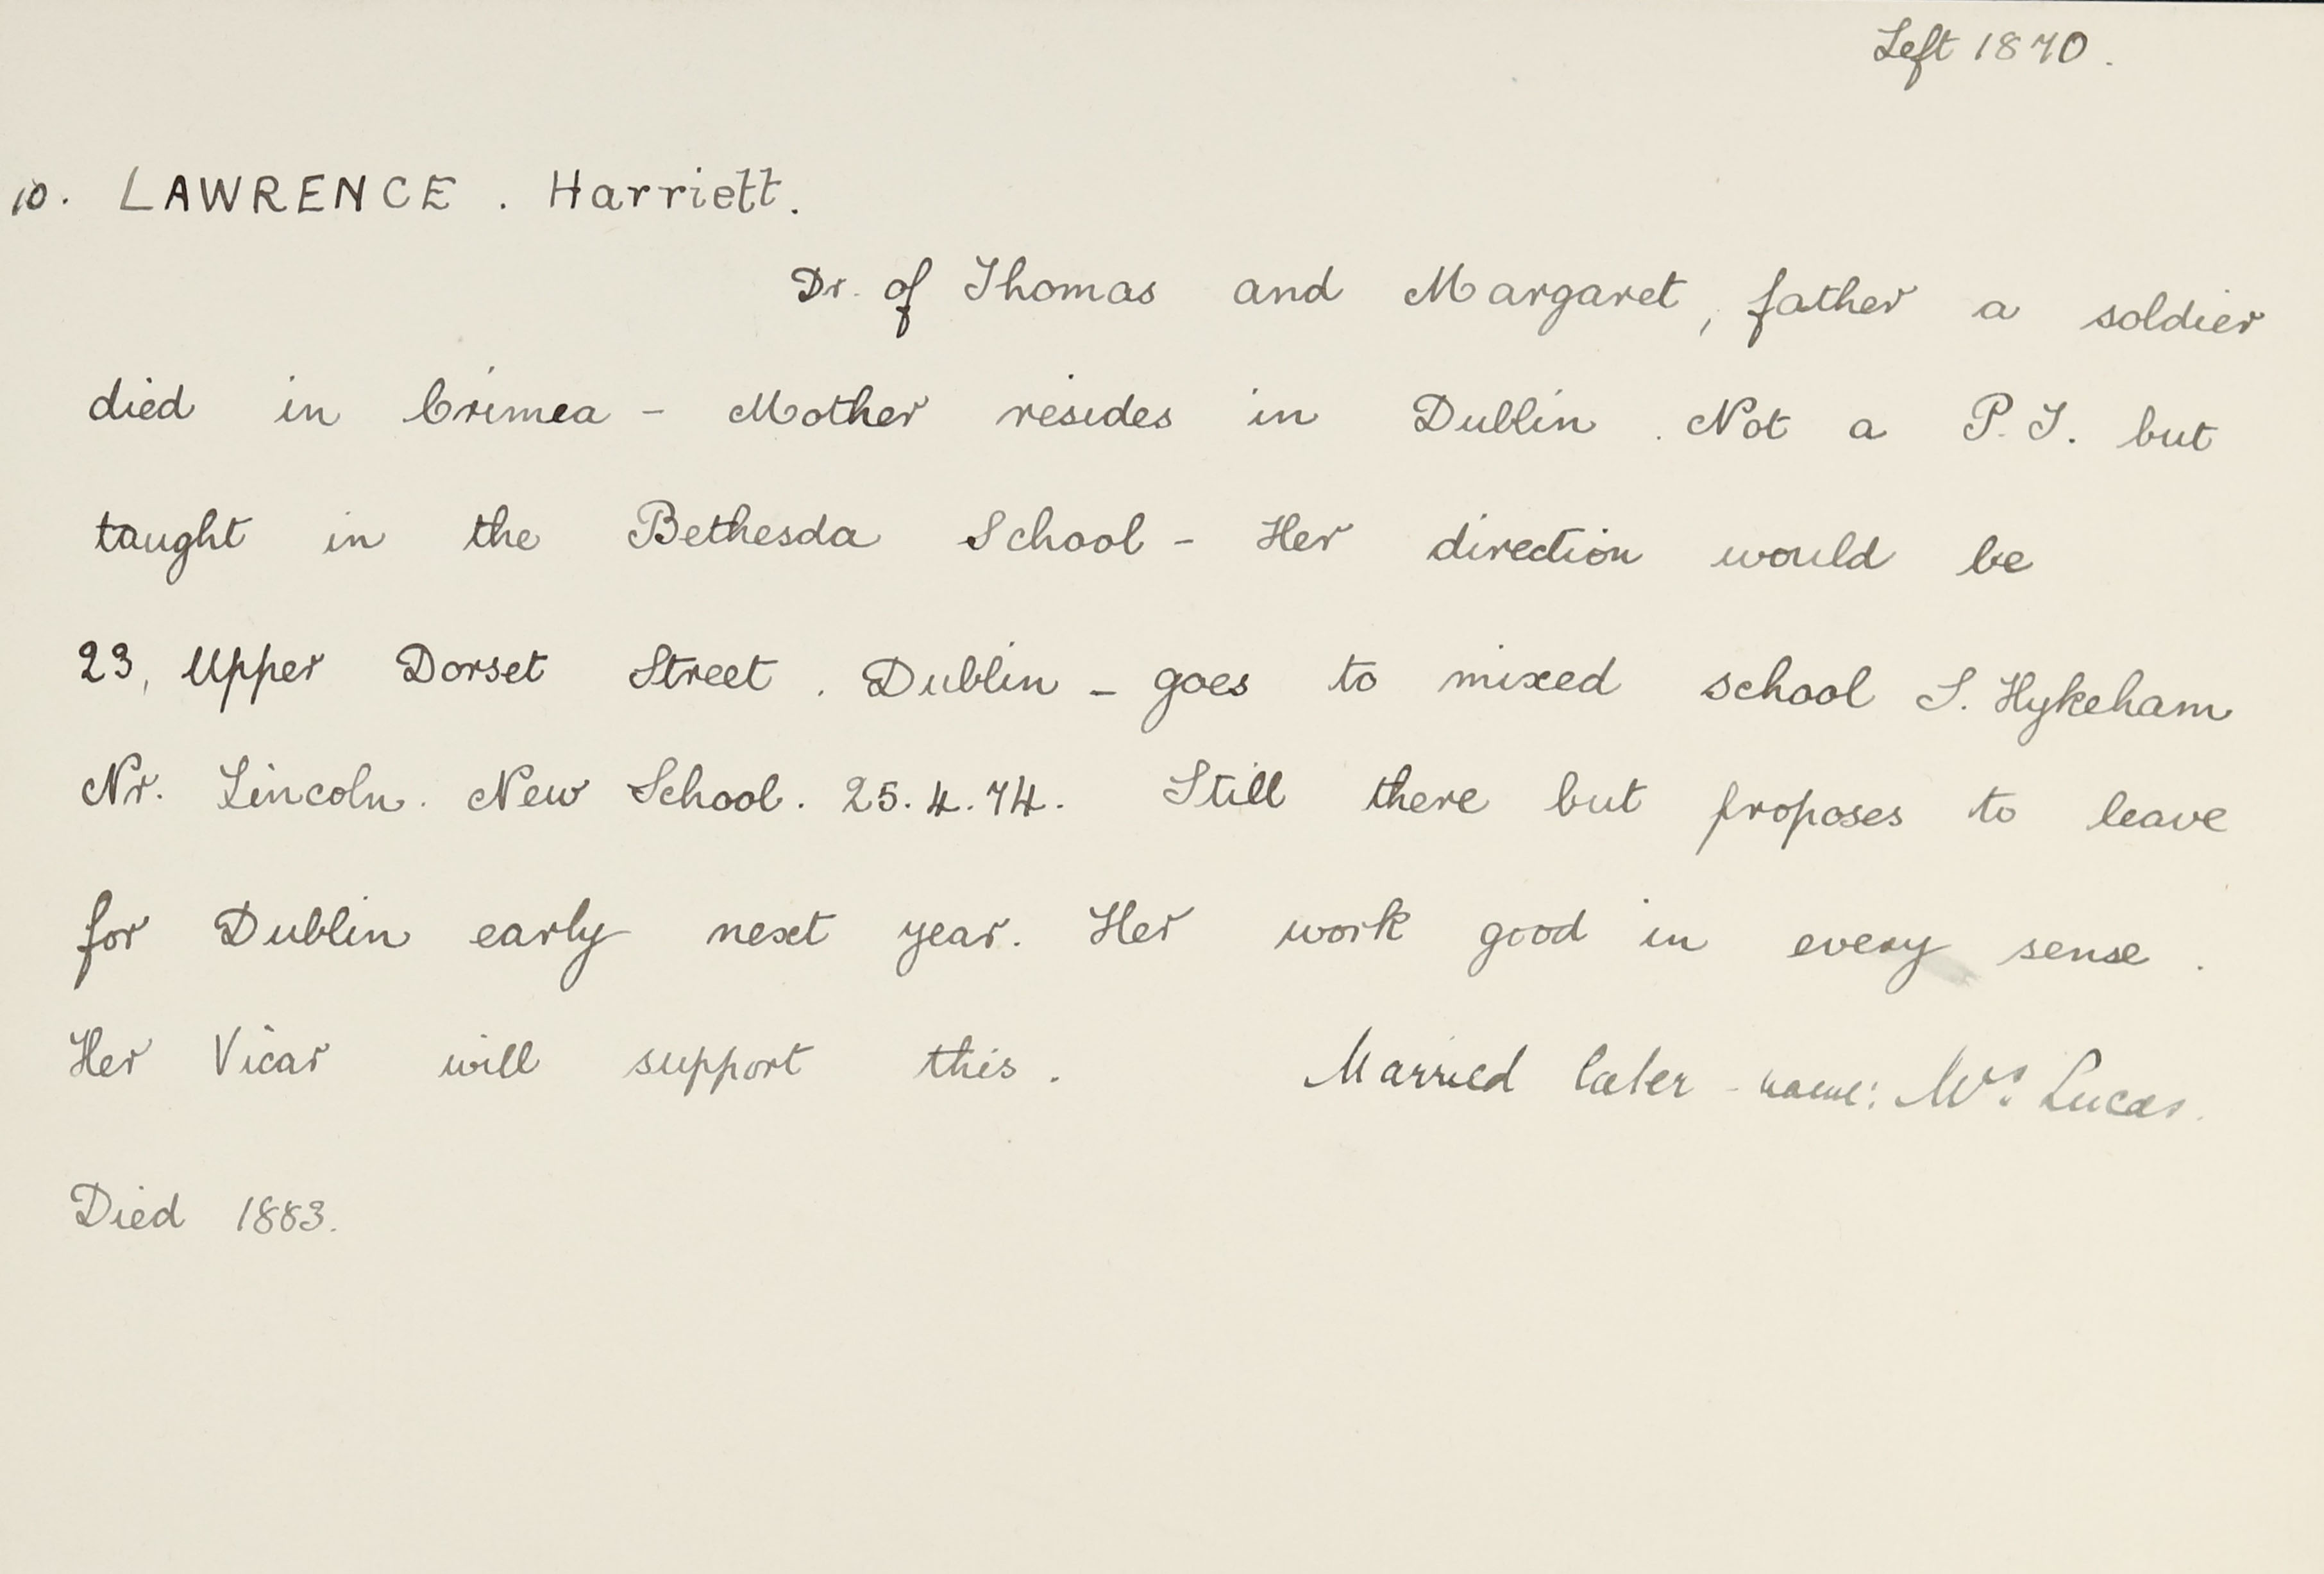 Left 1870.
10. LAWRENCE. Harriett.
Dr. of Thomas and Margaret, father a soldier
died in Crimea - Mother resides in Dublin. Not a P.T. but
taught in the Bethesda School - Her direction would be
23, Upper Dorset Street. Dublin - goes to mixed school S. Hykeham
Nr. Lincoln. New School. 25.4.74. Still there but proposes to leave
for Dublin early next year. Her work good in every sense.
Her Vicar will support this. Married later - name: Mrs Lucas.
Died 1883.